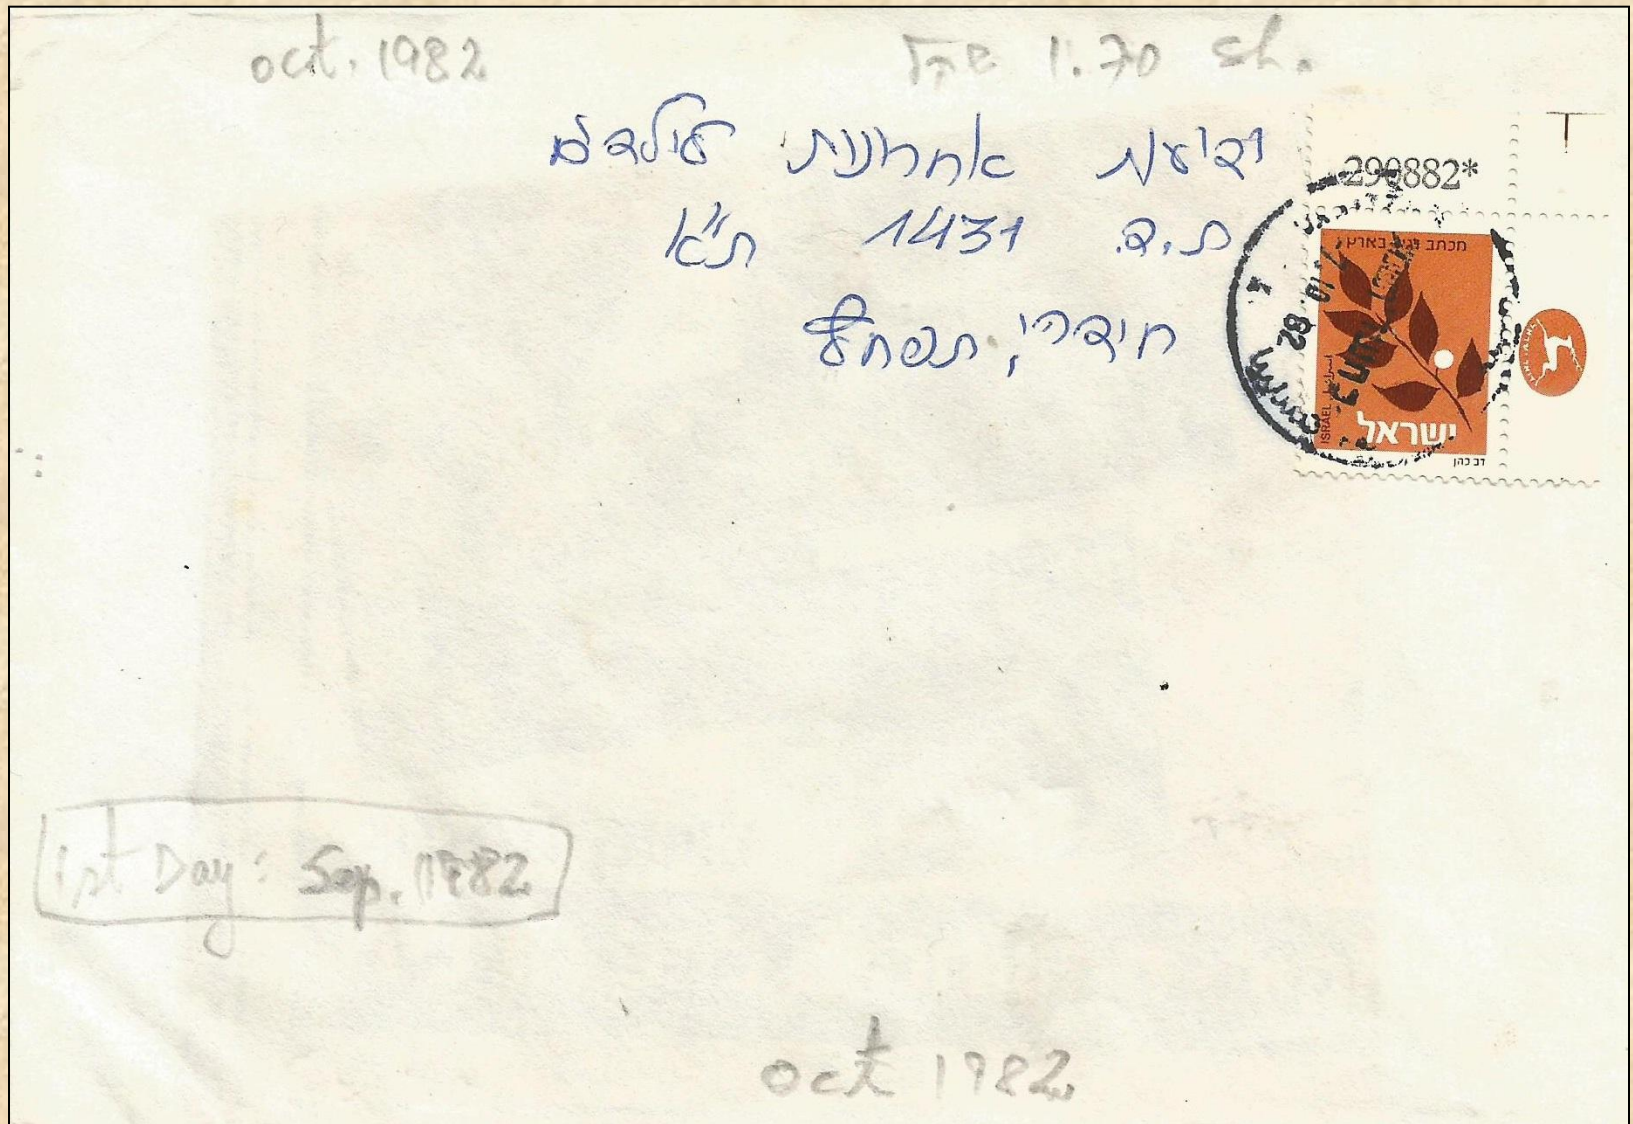 oct. 1982
שקל 1.70 sh.
ידיעות אחרונות לילדים
ת.ד. 1431 ת"א
חידה,
290882*
מכתב רגיל בארץ
ISRAEL
ישראל
דב כהן
1st Day: Sep. 1982
oct 1982